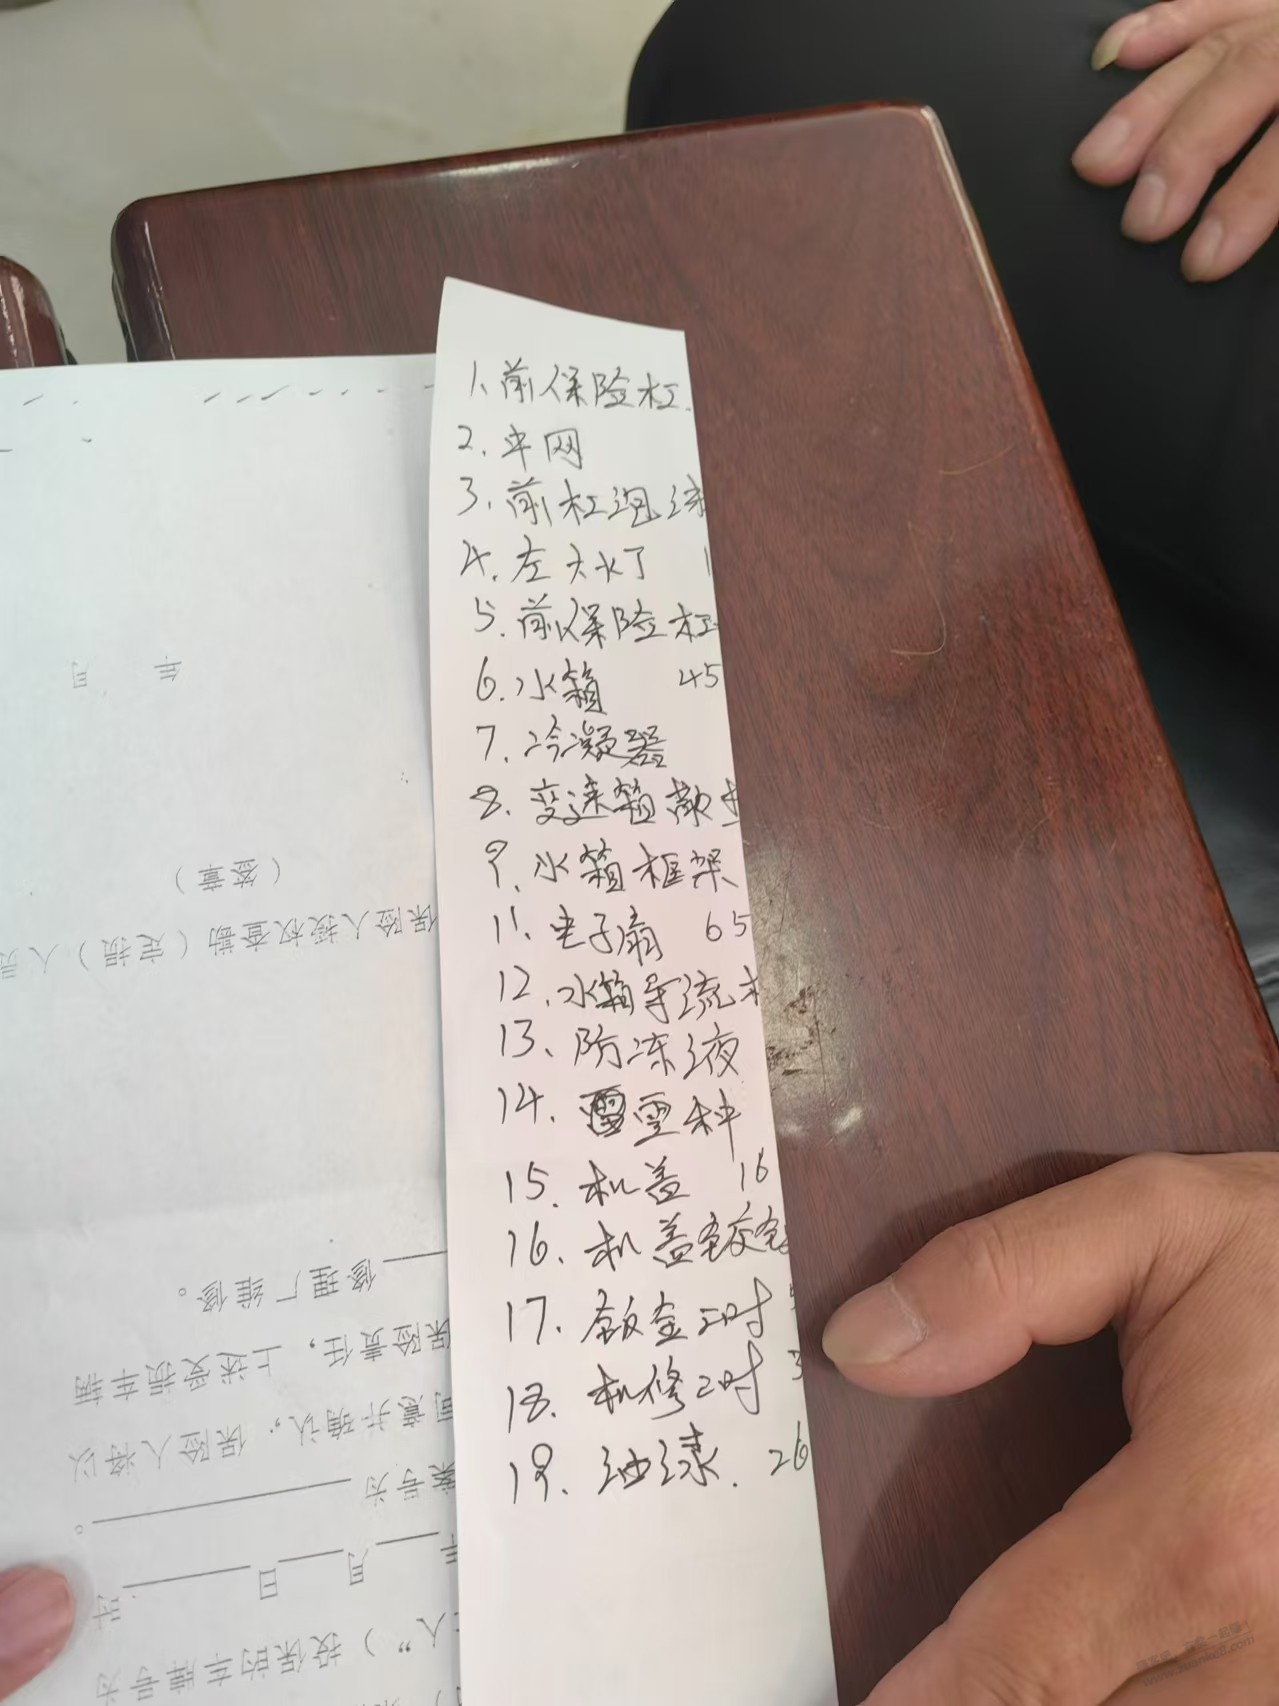 1、前保险杠
2、中网
3、前杠泡沫
4、左大灯 1
5、前保险杠
6、水箱 45
7、冷凝器
8、变速箱散
9、水箱框架
11、电子扇 65
12、水箱导流
13、防冻液
14、雪种
15、机盖 16
16、机盖铰
17、钣金工时
18、机修工时 3
19、油漆. 26
年 月
（签章）
保险人授权查勘（定损）人员
修理厂维修。
保险责任，上述受损车辆
同意并确认。保险人将以
案号为
年 月 日 时
人”）投保的车牌号为